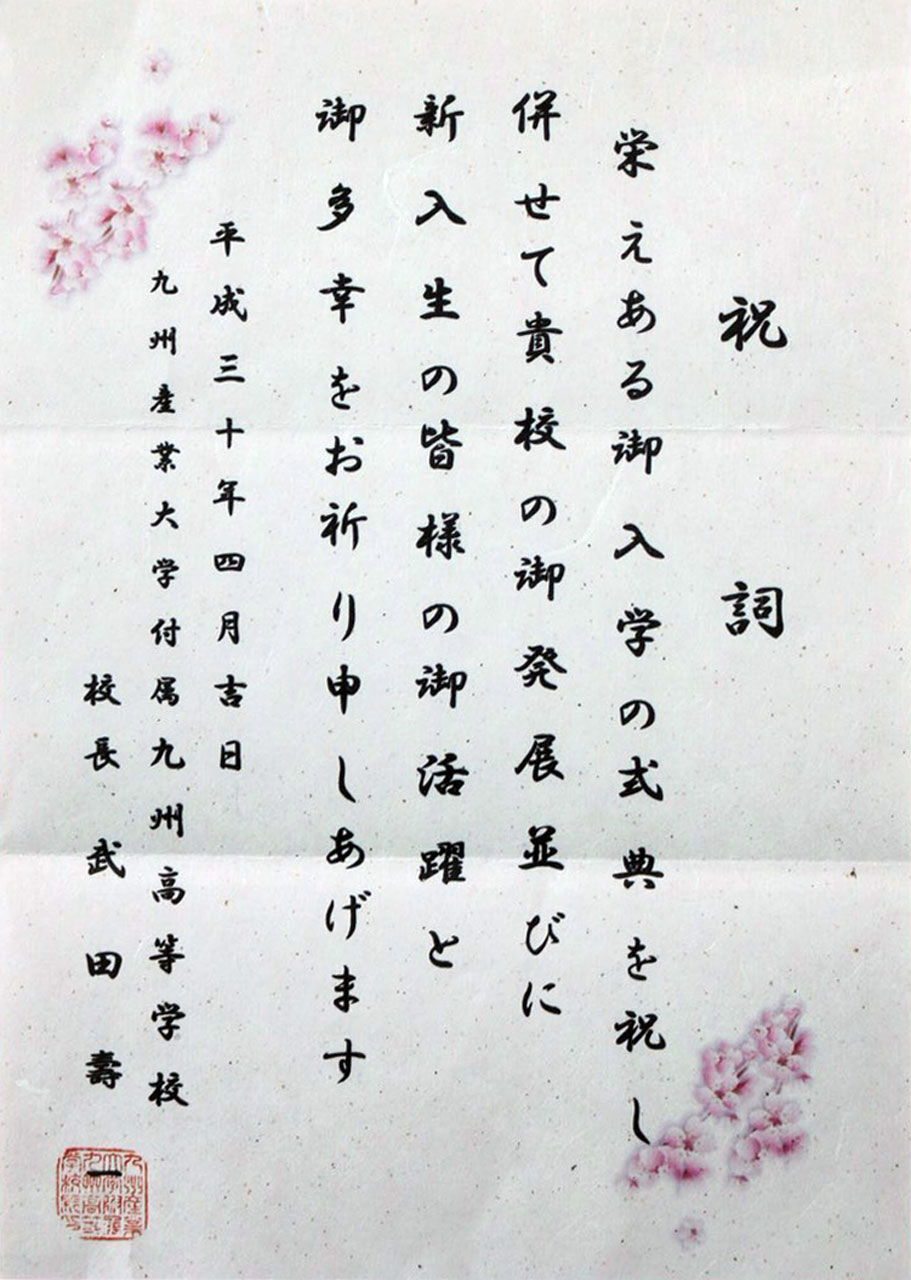 祝詞
栄えある御入学の式典を祝し
併せて貴校の御発展並びに
新入生の皆様の御活躍と
御多幸をお祈り申しあげます
平成三十年四月吉日
九州産業大学付属九州高等学校
校長 武田壽一